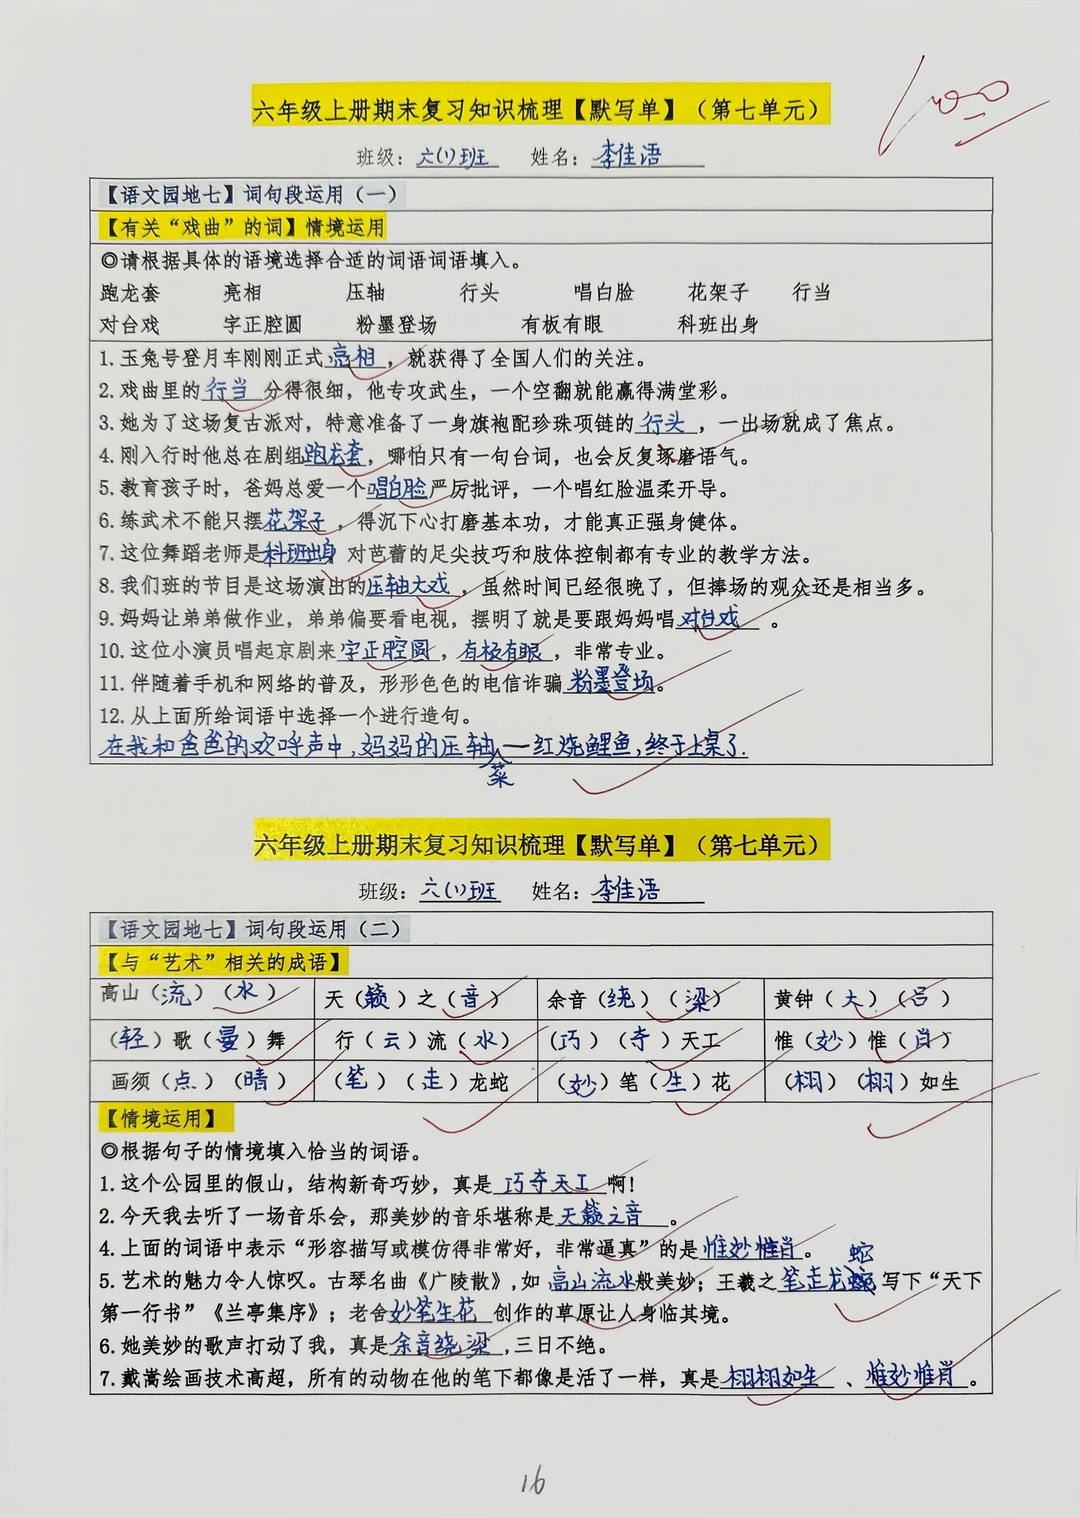 100
六年级上册期末复习知识梳理【默写单】（第七单元）
班级：六(1)班 姓名：李佳语
【语文园地七】词句段运用（一）
【有关“戏曲”的词】情境运用
◎请根据具体的语境选择合适的词语词语填入。
跑龙套 亮相 压轴 行头 唱白脸 花架子 行当
对台戏 字正腔圆 粉墨登场 有板有眼 科班出身
1. 玉兔号登月车刚刚正式亮相，就获得了全国人们的关注。
2. 戏曲里的行当分得很细，他专攻武生，一个空翻就能赢得满堂彩。
3. 她为了这场复古派对，特意准备了一身旗袍配珍珠项链的行头，一出场就成了焦点。
4. 刚入行时他总在剧组跑龙套，哪怕只有一句台词，也会反复琢磨语气。
5. 教育孩子时，爸妈总爱一个唱白脸严厉批评，一个唱红脸温柔开导。
6. 练武术不能只摆花架子，得沉下心打磨基本功，才能真正强身健体。
7. 这位舞蹈老师是科班出身 对芭蕾的足尖技巧和肢体控制都有专业的教学方法。
8. 我们班的节目是这场演出的压轴大戏，虽然时间已经很晚了，但捧场的观众还是相当多。
9. 妈妈让弟弟做作业，弟弟偏要看电视，摆明了就是要跟妈妈唱对台戏。
10. 这位小演员唱起京剧来字正腔圆，有板有眼，非常专业。
11. 伴随着手机和网络的普及，形形色色的电信诈骗粉墨登场。
12. 从上面所给词语中选择一个进行造句。
在我和爸爸的欢呼声中，妈妈的压轴菜—红烧鲤鱼，终于上桌了.
六年级上册期末复习知识梳理【默写单】（第七单元）
班级：六(1)班 姓名：李佳语
【语文园地七】词句段运用（二）
【与“艺术”相关的成语】
高山（流）（水） 天（籁）之（音） 余音（绕）（梁） 黄钟（大）（吕）
（轻）歌（曼）舞 行（云）流（水） （巧）（夺）天工 惟（妙）惟（肖）
画须（点）（晴） （笔）（走）龙蛇 （妙）笔（生）花 （栩）（栩）如生
【情境运用】
◎根据句子的情境填入恰当的词语。
1. 这个公园里的假山，结构新奇巧妙，真是巧夺天工啊！
2. 今天我去听了一场音乐会，那美妙的音乐堪称是天籁之音。
4. 上面的词语中表示“形容描写或模仿得非常好，非常逼真”的是惟妙惟肖。
5. 艺术的魅力令人惊叹。古琴名曲《广陵散》，如高山流水般美妙；王羲之笔走龙蛇写下“天下
第一行书”《兰亭集序》；老舍妙笔生花创作的草原让人身临其境。
6. 她美妙的歌声打动了我，真是余音绕梁，三日不绝。
7. 戴嵩绘画技术高超，所有的动物在他的笔下都像是活了一样，真是栩栩如生、惟妙惟肖。
16